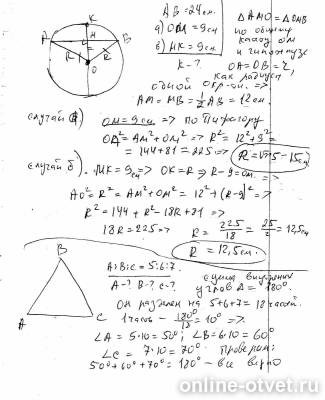 K
A M B
R R
O
AB = 24 см.
а) OM = 9 см
б) MK = 9 см
R - ?
ΔAMO = ΔOMB
по общему
катету OM
и гипотенузе
OA = OB = R,
как радиусы
одной окр-ти. =>
AM = MB = 1/2 AB = 12 см.
случай а) OM = 9 см => по Пифагору
OA² = AM² + OM² => R² = 12² + 9² =
= 144 + 81 = 225 => R = √225 = 15 см
случай б). MK = 9 см => OK = R => R - 9 = OM =>
AO² = R² = AM² + OM² = 12² + (R - 9)² =>
R² = 144 + R² - 18R + 81 =>
18R = 225 => R = 225/18 = 25/2 = 12,5 см
R = 12,5 см.
B
A C
A:B:C = 5:6:7.
A - ? B - ? C - ?
сумма внутренних
углов Δ = 180°.
Он разделен на 5+6+7 = 18 частей.
1 часть - 180°/18 = 10° =>
∠A = 5·10 = 50°; ∠B = 6·10 = 60°
∠C = 7·10 = 70° Проверим:
50° + 60° + 70° = 180° - все верно
online-otvet.ru